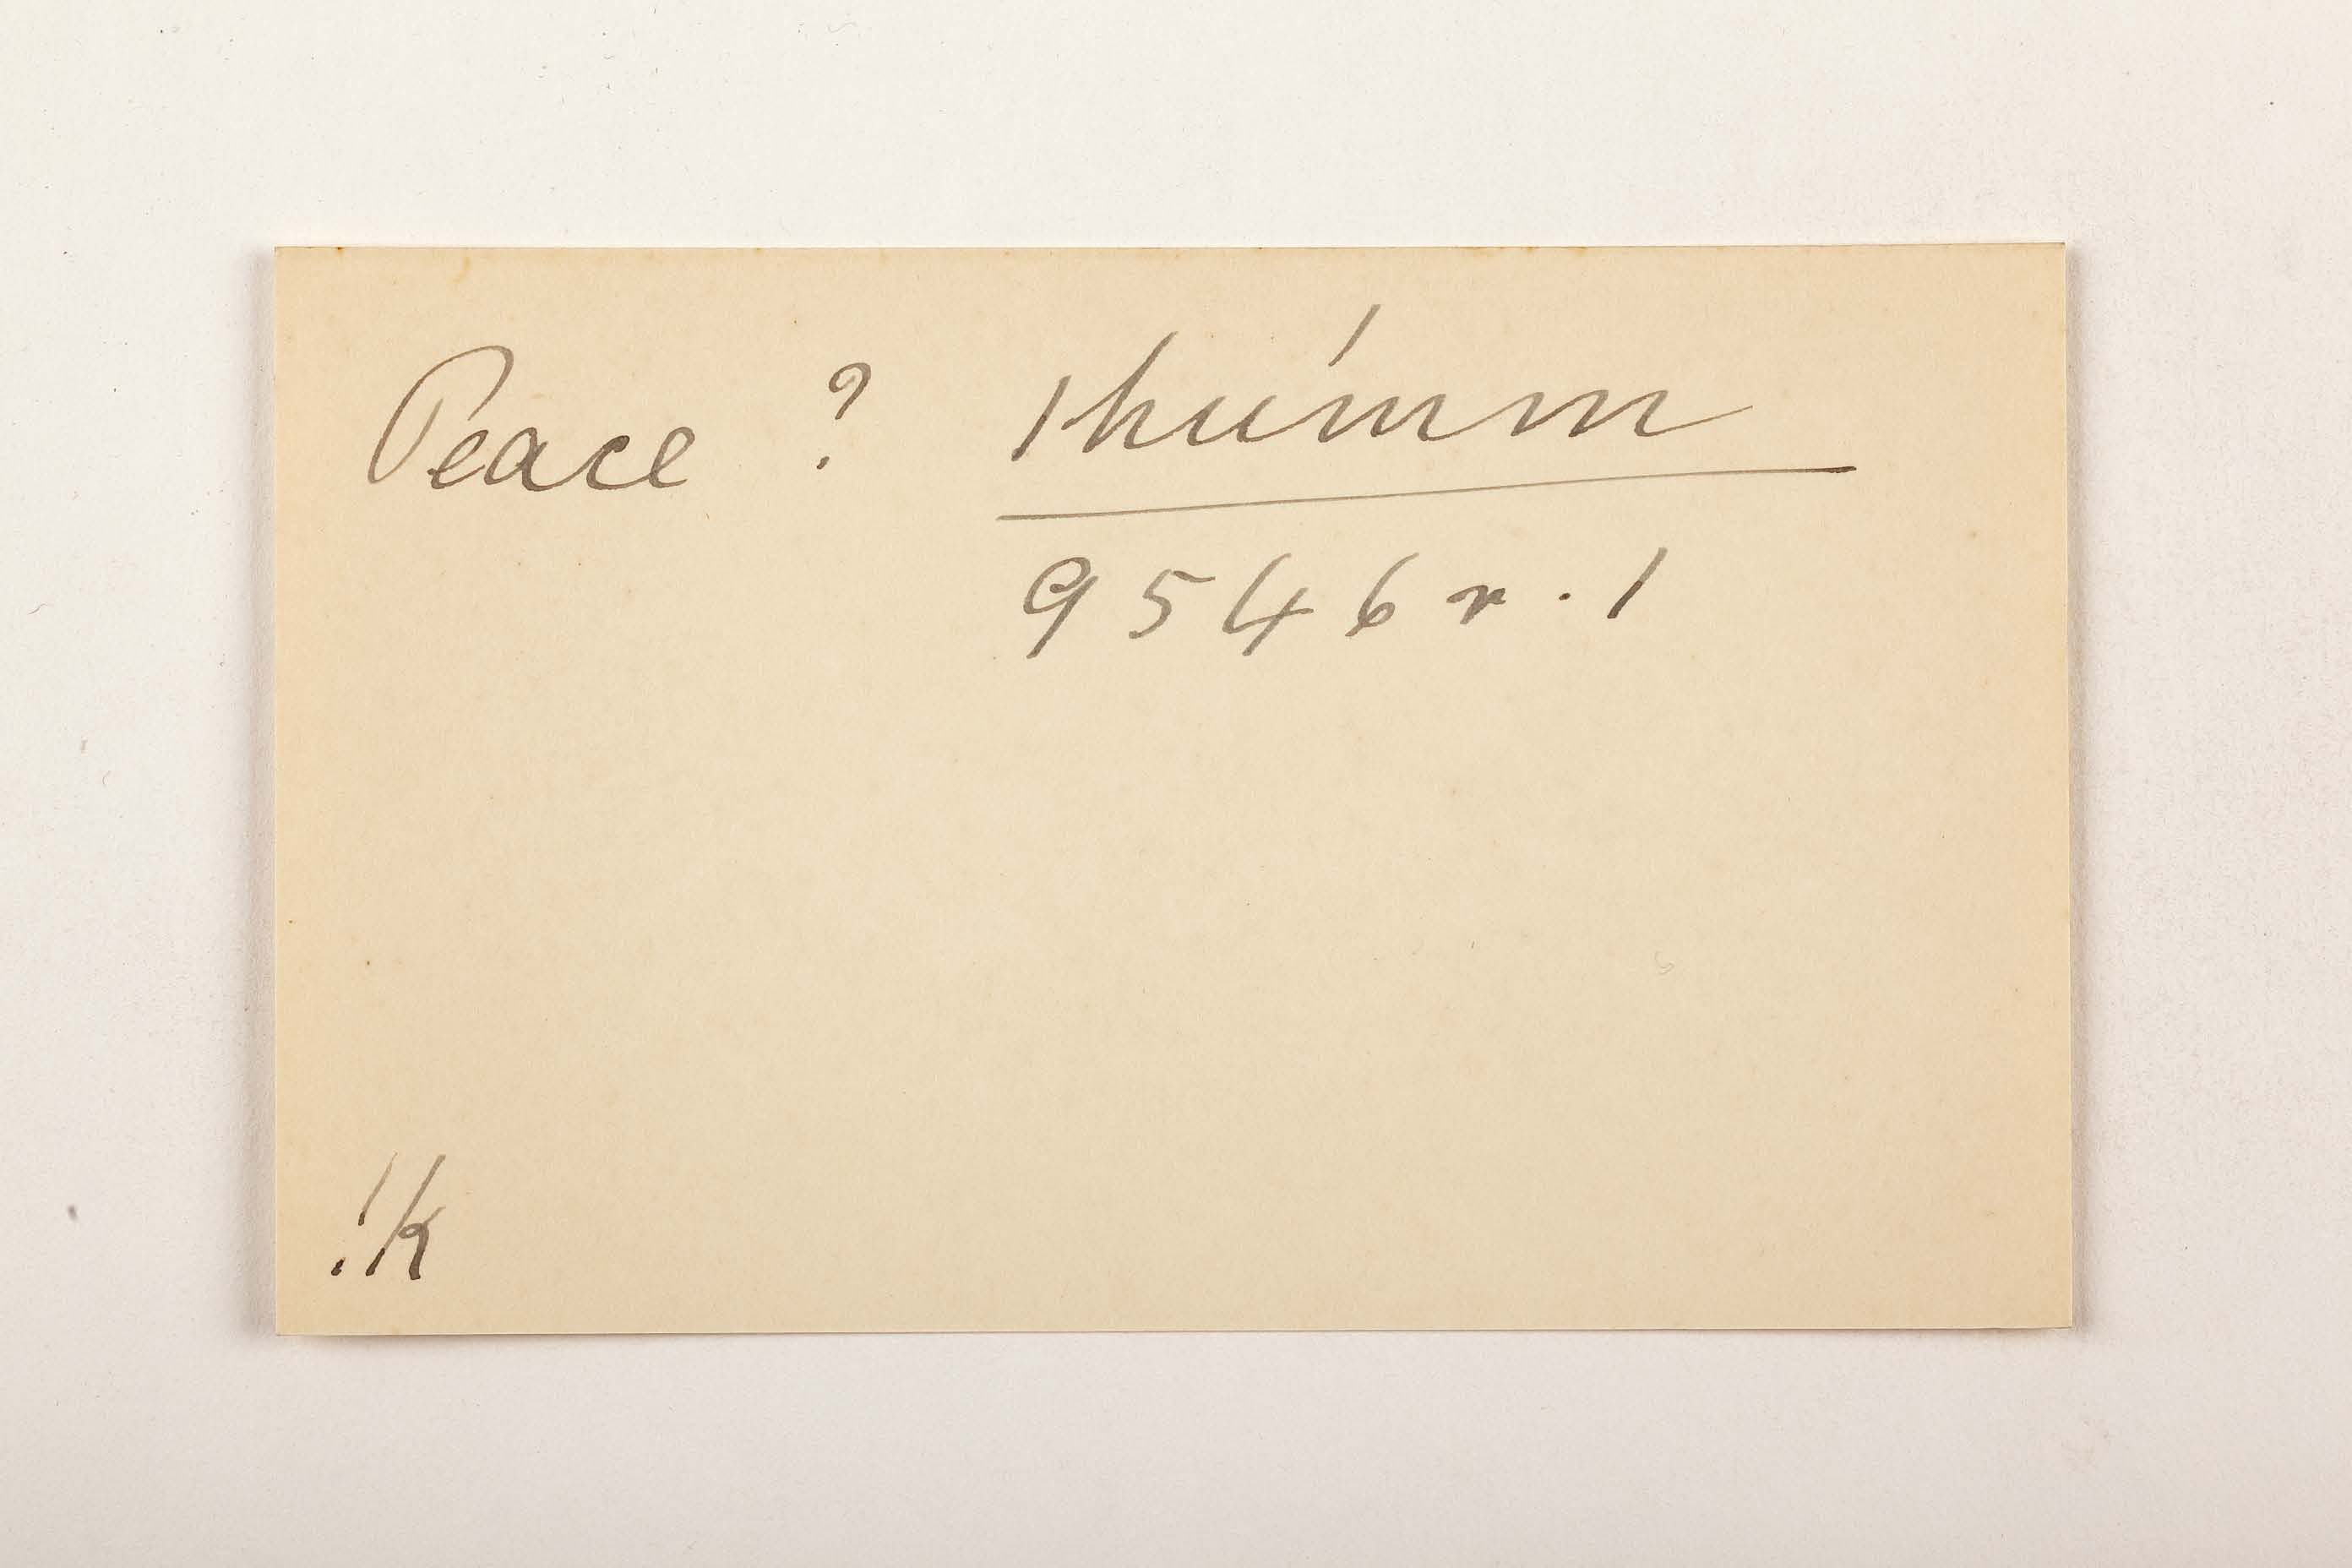 Peace ? ǀhúmm
9546 r. 1
!k